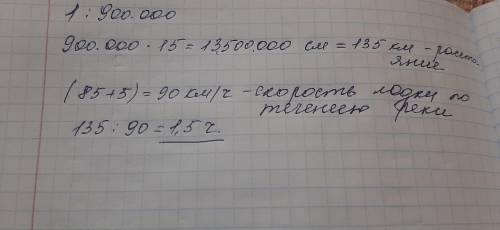 1 : 900.000
900.000 · 15 = 13,500.000 см = 135 км - расто-
яние
(85+5) = 90 км/ч - скорость лодки по
течению реки
135 : 90 = 1,5 ч.